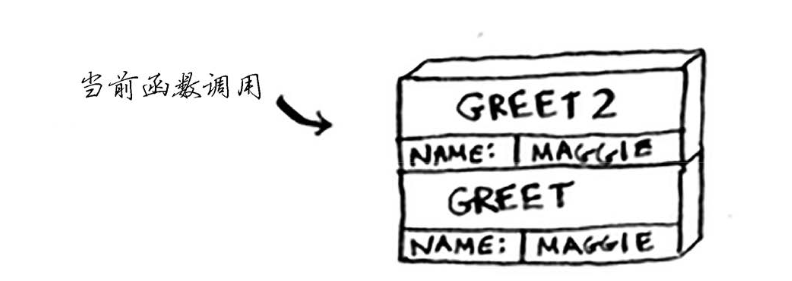 当前函数调用
GREET2
NAME: MAGGIE
GREET
NAME: MAGGIE